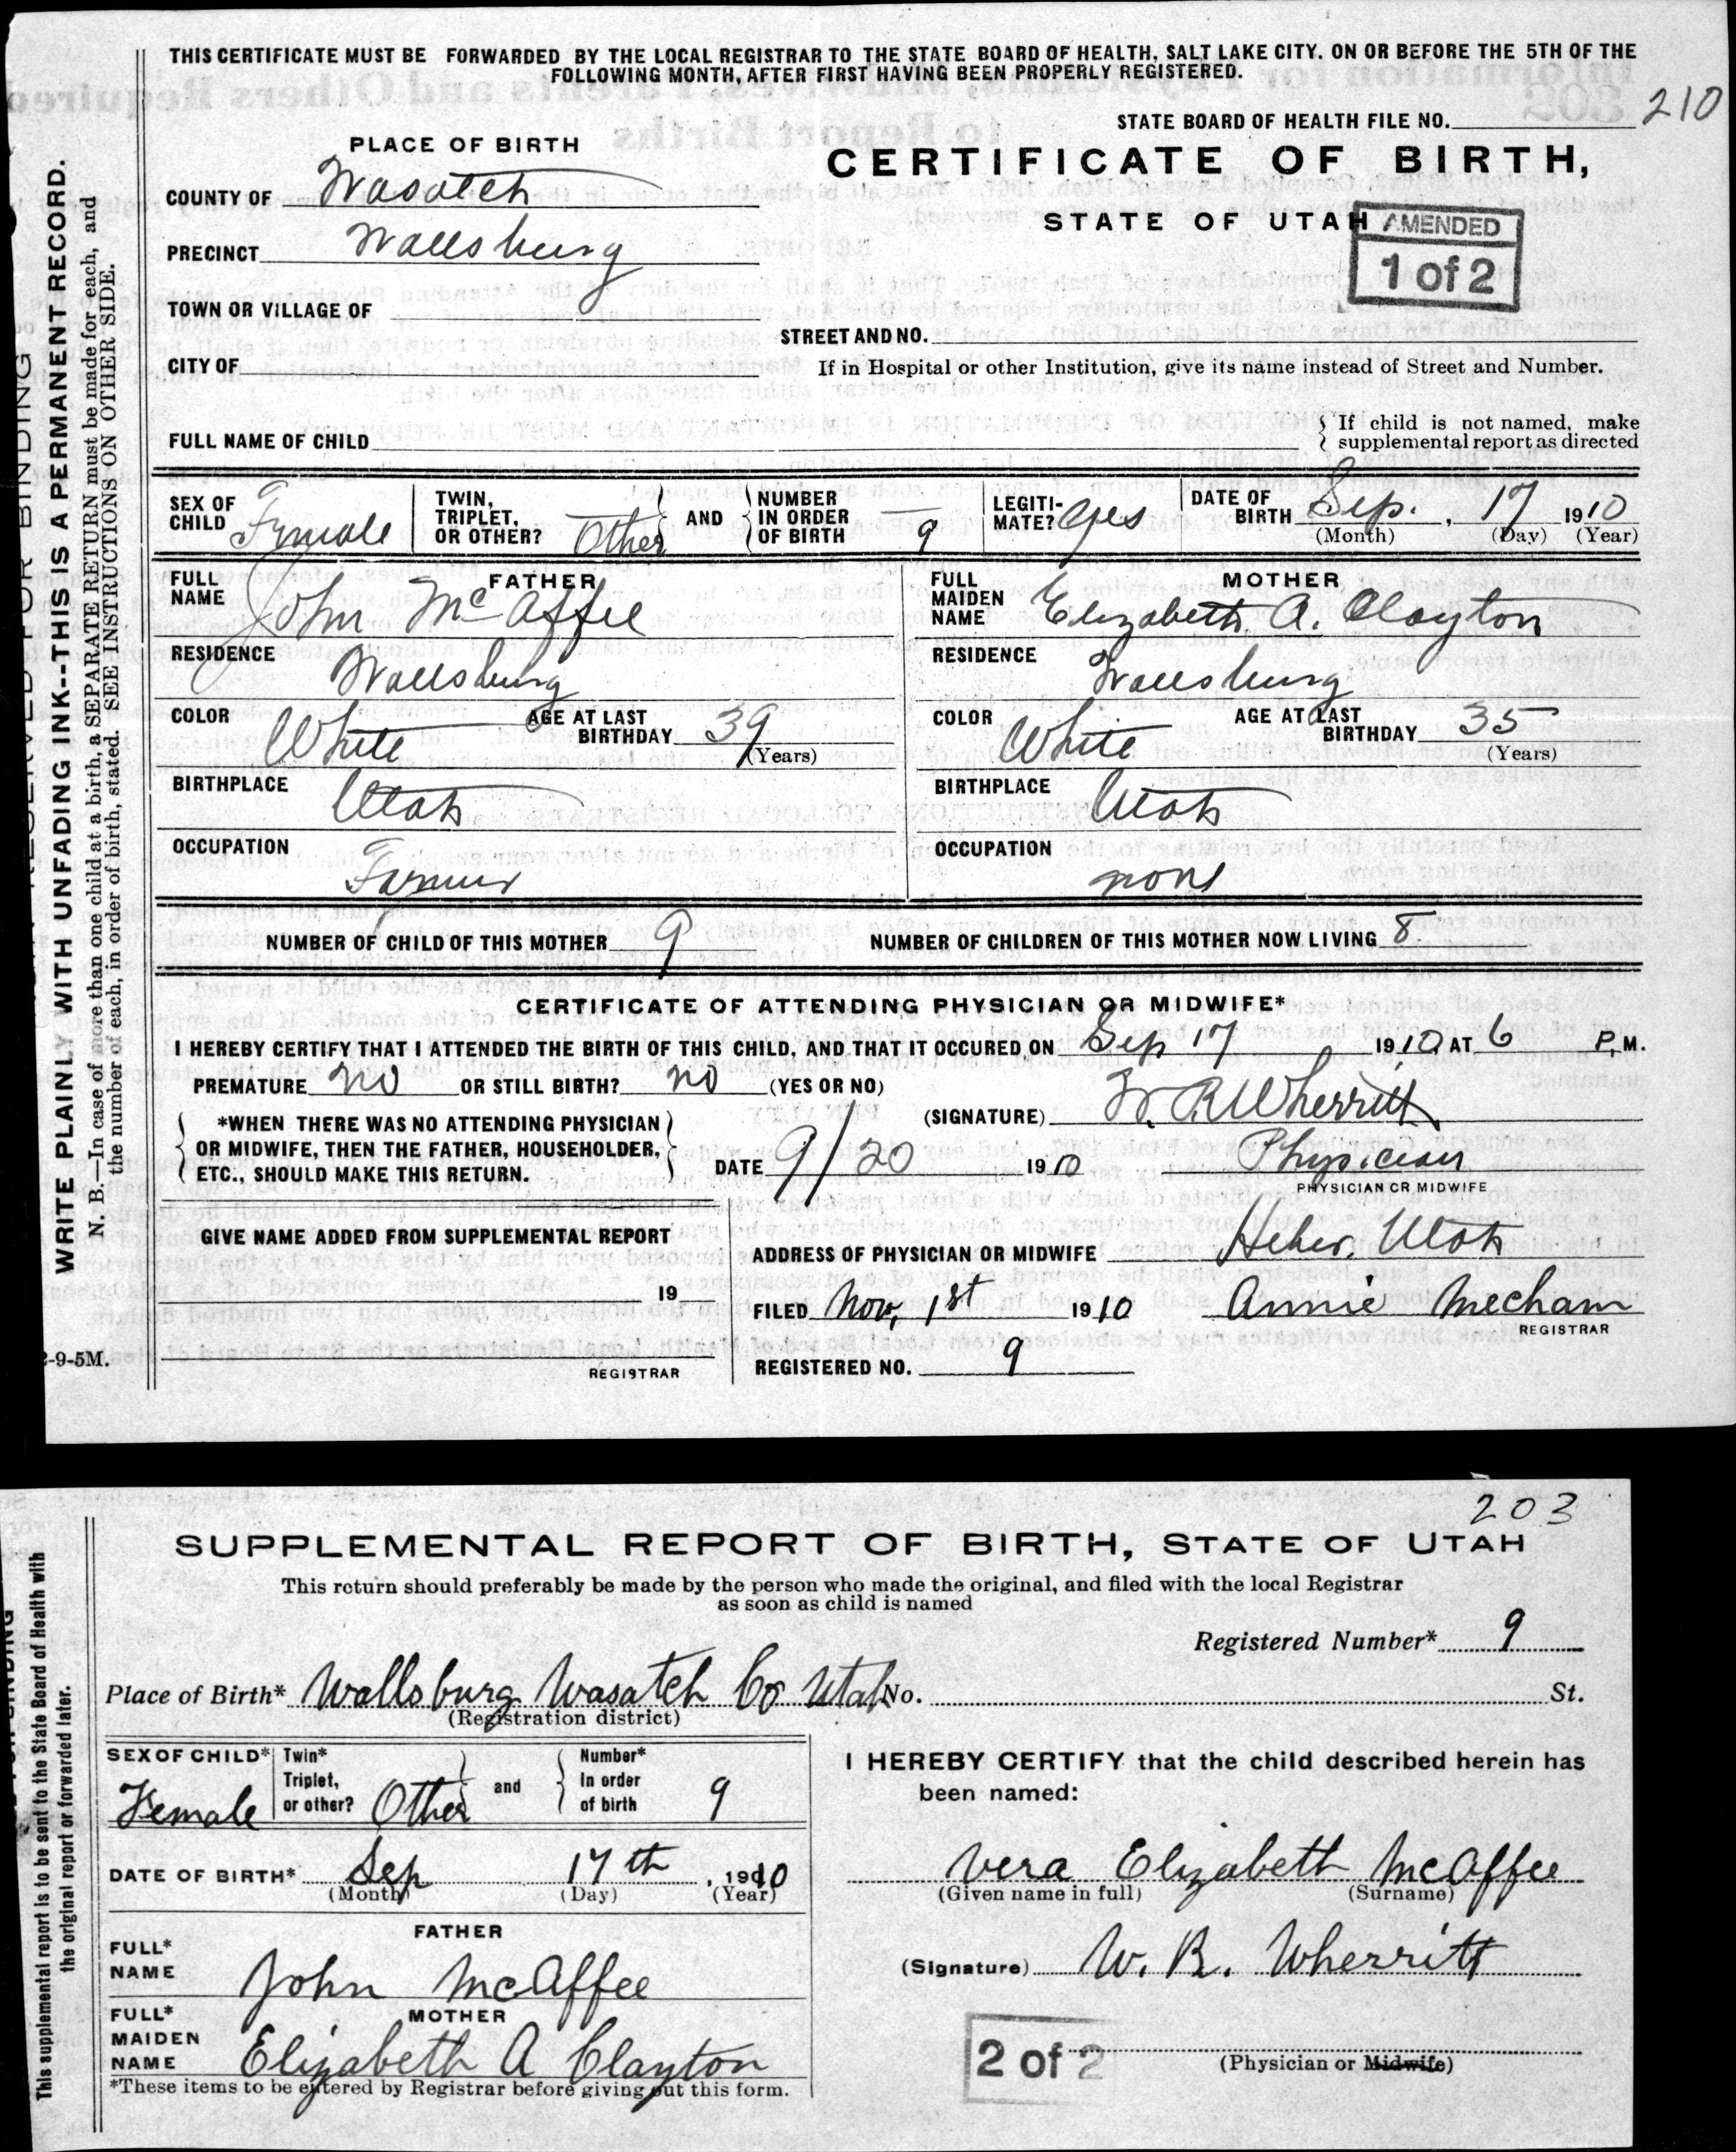 THIS CERTIFICATE MUST BE FORWARDED BY THE LOCAL REGISTRAR TO THE STATE BOARD OF HEALTH, SALT LAKE CITY. ON OR BEFORE THE 5TH OF THE
FOLLOWING MONTH, AFTER FIRST HAVING BEEN PROPERLY REGISTERED.
STATE BOARD OF HEALTH FILE NO. 210
PLACE OF BIRTH
CERTIFICATE OF BIRTH,
COUNTY OF Wasatch
STATE OF UTAH
AMENDED
1 of 2
PRECINCT Wallsburg
TOWN OR VILLAGE OF
STREET AND NO.
CITY OF
If in Hospital or other Institution, give its name instead of Street and Number.
FULL NAME OF CHILD
If child is not named, make
supplemental report as directed
SEX OF CHILD Female
TWIN, TRIPLET, OR OTHER? Other
AND
NUMBER IN ORDER OF BIRTH 9
LEGITIMATE? Yes
DATE OF BIRTH Sep. , 17 1910
(Month) (Day) (Year)
FATHER
FULL NAME John McAffee
RESIDENCE Wallsburg
COLOR White
AGE AT LAST BIRTHDAY 39
(Years)
BIRTHPLACE Utah
OCCUPATION Farmer
MOTHER
FULL MAIDEN NAME Elizabeth A. Clayton
RESIDENCE Wallsburg
COLOR White
AGE AT LAST BIRTHDAY 35
(Years)
BIRTHPLACE Utah
OCCUPATION none
NUMBER OF CHILD OF THIS MOTHER 9
NUMBER OF CHILDREN OF THIS MOTHER NOW LIVING 8
CERTIFICATE OF ATTENDING PHYSICIAN OR MIDWIFE*
I HEREBY CERTIFY THAT I ATTENDED THE BIRTH OF THIS CHILD, AND THAT IT OCCURED ON Sep 17 1910 AT 6 P.M.
PREMATURE no OR STILL BIRTH? no (YES OR NO)
*WHEN THERE WAS NO ATTENDING PHYSICIAN
OR MIDWIFE, THEN THE FATHER, HOUSEHOLDER,
ETC., SHOULD MAKE THIS RETURN.
(SIGNATURE) W. R Wherritt
DATE 9/20 1910
Physician
PHYSICIAN OR MIDWIFE
GIVE NAME ADDED FROM SUPPLEMENTAL REPORT
19
REGISTRAR
ADDRESS OF PHYSICIAN OR MIDWIFE Heber, Utah
FILED Nov, 1st 1910 Annie Mecham
REGISTRAR
REGISTERED NO. 9
WRITE PLAINLY WITH UNFADING INK--THIS IS A PERMANENT RECORD.
N. B.—In case of more than one child at a birth, a SEPARATE RETURN must be made for each, and
the number of each, in order of birth, stated. SEE INSTRUCTIONS ON OTHER SIDE.
-9-5M.
203
SUPPLEMENTAL REPORT OF BIRTH, STATE OF UTAH
This return should preferably be made by the person who made the original, and filed with the local Registrar
as soon as child is named
Registered Number* 9
Place of Birth* Wallsburg Wasatch Co Utah No. St.
(Registration district)
SEX OF CHILD* Female
Twin* Triplet, or other? Other
and
Number* In order of birth 9
DATE OF BIRTH* Sep 17th , 1910
(Month) (Day) (Year)
FATHER
FULL* NAME John McAffee
MOTHER
FULL* MAIDEN NAME Elizabeth A Clayton
*These items to be entered by Registrar before giving out this form.
I HEREBY CERTIFY that the child described herein has
been named:
Vera Elizabeth McAffee
(Given name in full) (Surname)
(Signature) W. R. Wherritt
2 of 2
(Physician or Midwife)
This supplemental report is to be sent to the State Board of Health with
the original report or forwarded later.